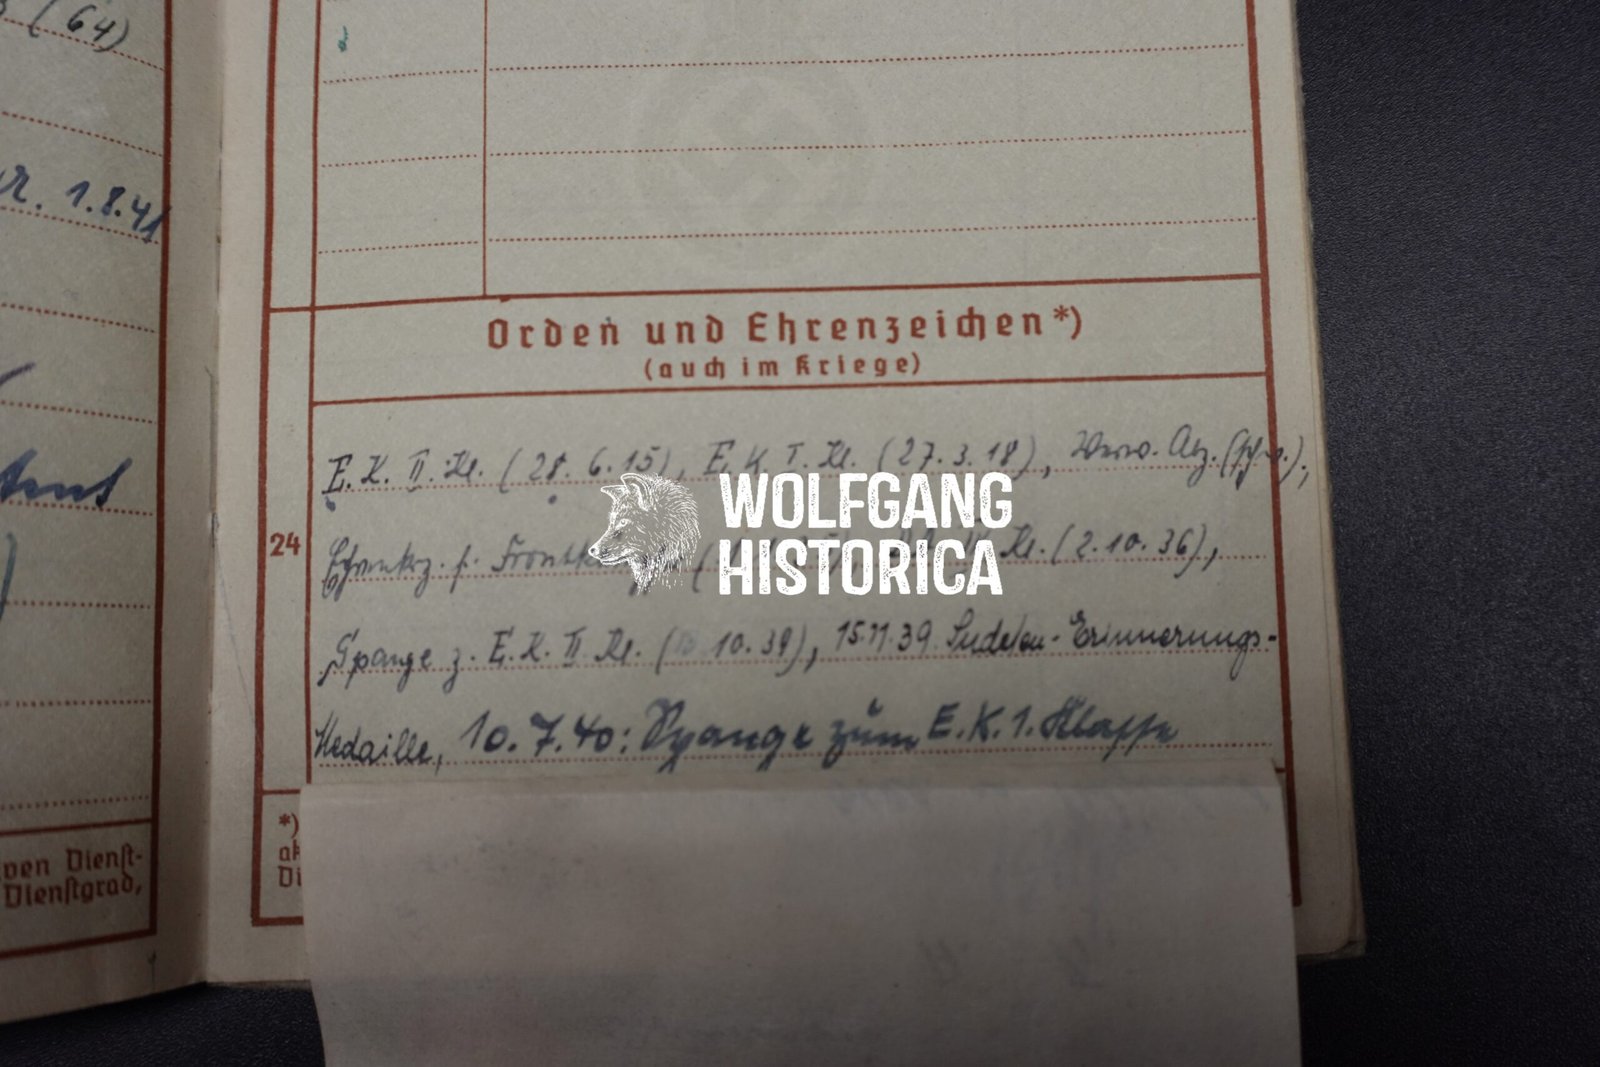 (64)
1.8.41
ven Dienst-
Dienstgrad,
Orden und Ehrenzeichen *)
(auch im Kriege)
24
E. K. II. Kl. (28. 6. 15), E. K. I. Kl. (27. 3. 18), Verw. Abz. (schw.),
Ehrenkrz. f. Kl. (2. 10. 36),
Spange z. E. K. II. Kl. ( 10. 39), 15.11.39. Sudeten-Erinnerungs-
Medaille, 10. 7. 40: Spange zum E. K. 1. Klasse
*)
WOLFGANG
HISTORICA